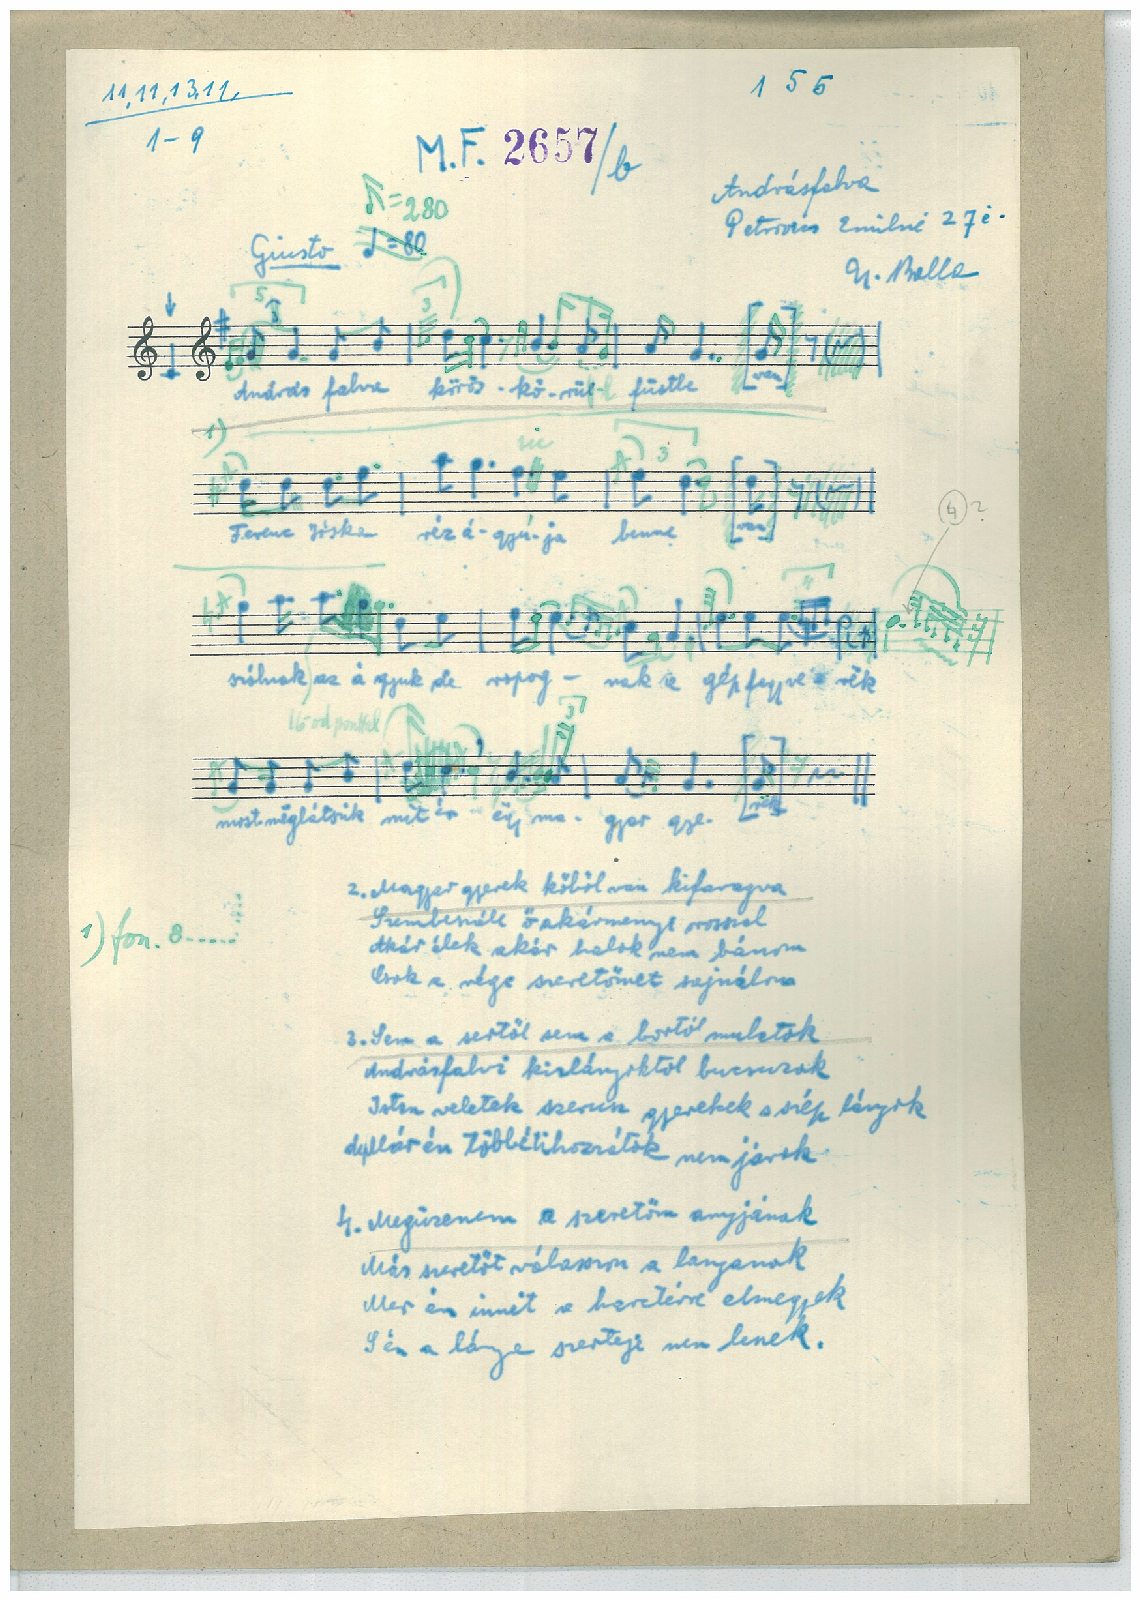 11, 11, 13, 11,
1 5 6
1-9
M.F. 2657/b
Andrásfalva
♪=280
Petrovics Emilné 27 é.
Giusto ♩=80
Gy. Balla
5
3
3
András falva körös-kö-rül füstle [van]
1)
sic
3
Ferenc Jóska réz á-gyú-ja benne [van]
4 ?
szólnak az á gyuk de ropog - nak a gép fegyve rék
16-od ponttal
3
most meglátsuk mit ér égy ma- gyar gye- [rék]
2. Magyar gyerek kőből van kifaragva
Szembeszáll ő akármenyi rosszal
1) fon. 8......
Akár élek akár halok nem bánom
Csak a régi szeretőmet sajnálom
3. Sem a sertől sem a bortól mulatok
Andrásfalvi kislányoktól bucsuzok
Isten veletek szerusz gyerekek s szép lányok
Már én többé tihozzátok nem járok
4. Megüzenem a szeretőm anyjának
Más szeretőt válasszon a lányanak
Mer én innét a harctérre elmegyek
S én a lánya szerteje nem lenek.